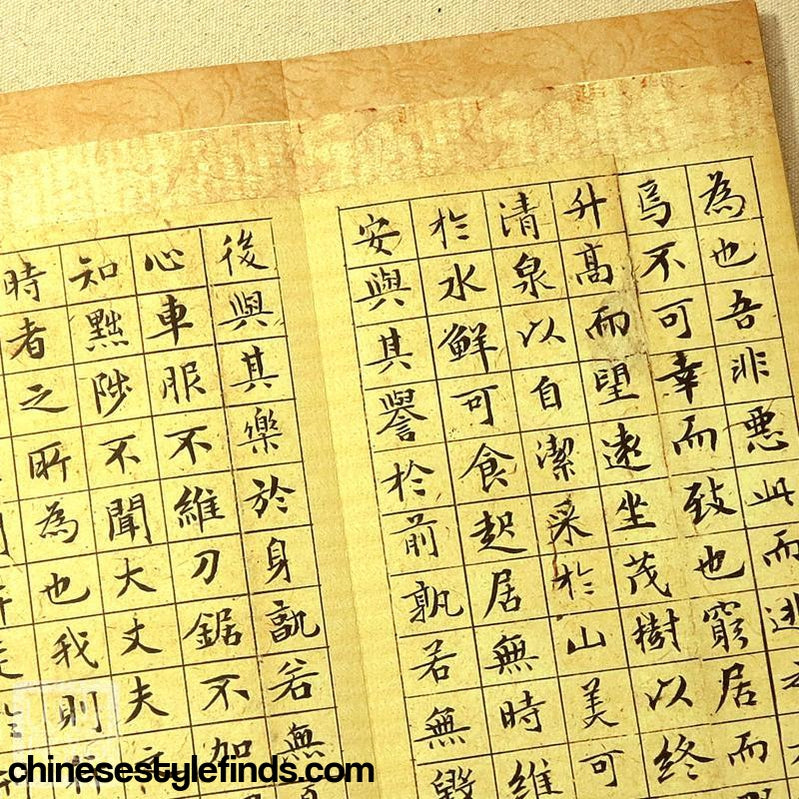 為也吾非惡此而逃
焉不可幸而致也窮居而
升高而望遠坐茂樹以終
清泉以自潔采於山美可
於水鮮可食起居無時維
安與其譽於前孰若無毀
後與其樂於身孰若無
心車服不維刀鋸不加
知黜陟不聞大丈夫
時者之所為也我則
chinesestylefinds.com